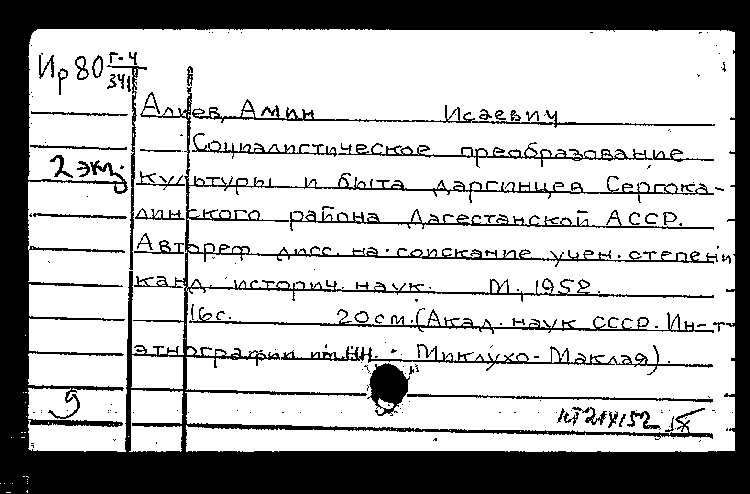 Ир80 Г-4/341
Алиев, Амин Исаевич
Социалистическое преобразование
2 экз.
культуры и быта даргинцев Сергока-
линского района Дагестанской АССР.
Автореф. дисс. на соискание учен. степени
канд. историч. наук. М., 1952.
16с. 20см. (Акад. наук СССР. Ин-т
этнографии им. НН. Миклухо-Маклая).
9